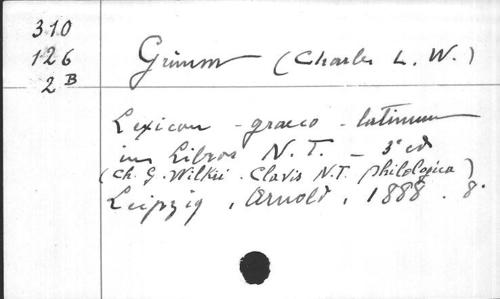 310
126
2 B
Grimm (Charles L. W.)
Lexicon - graeco - latinum
in Libros N. T. _ 3e ed
(Ch. G. Wilkii. Clavis N.T. philologica)
Leipzig, Arnold, 1888. 8°